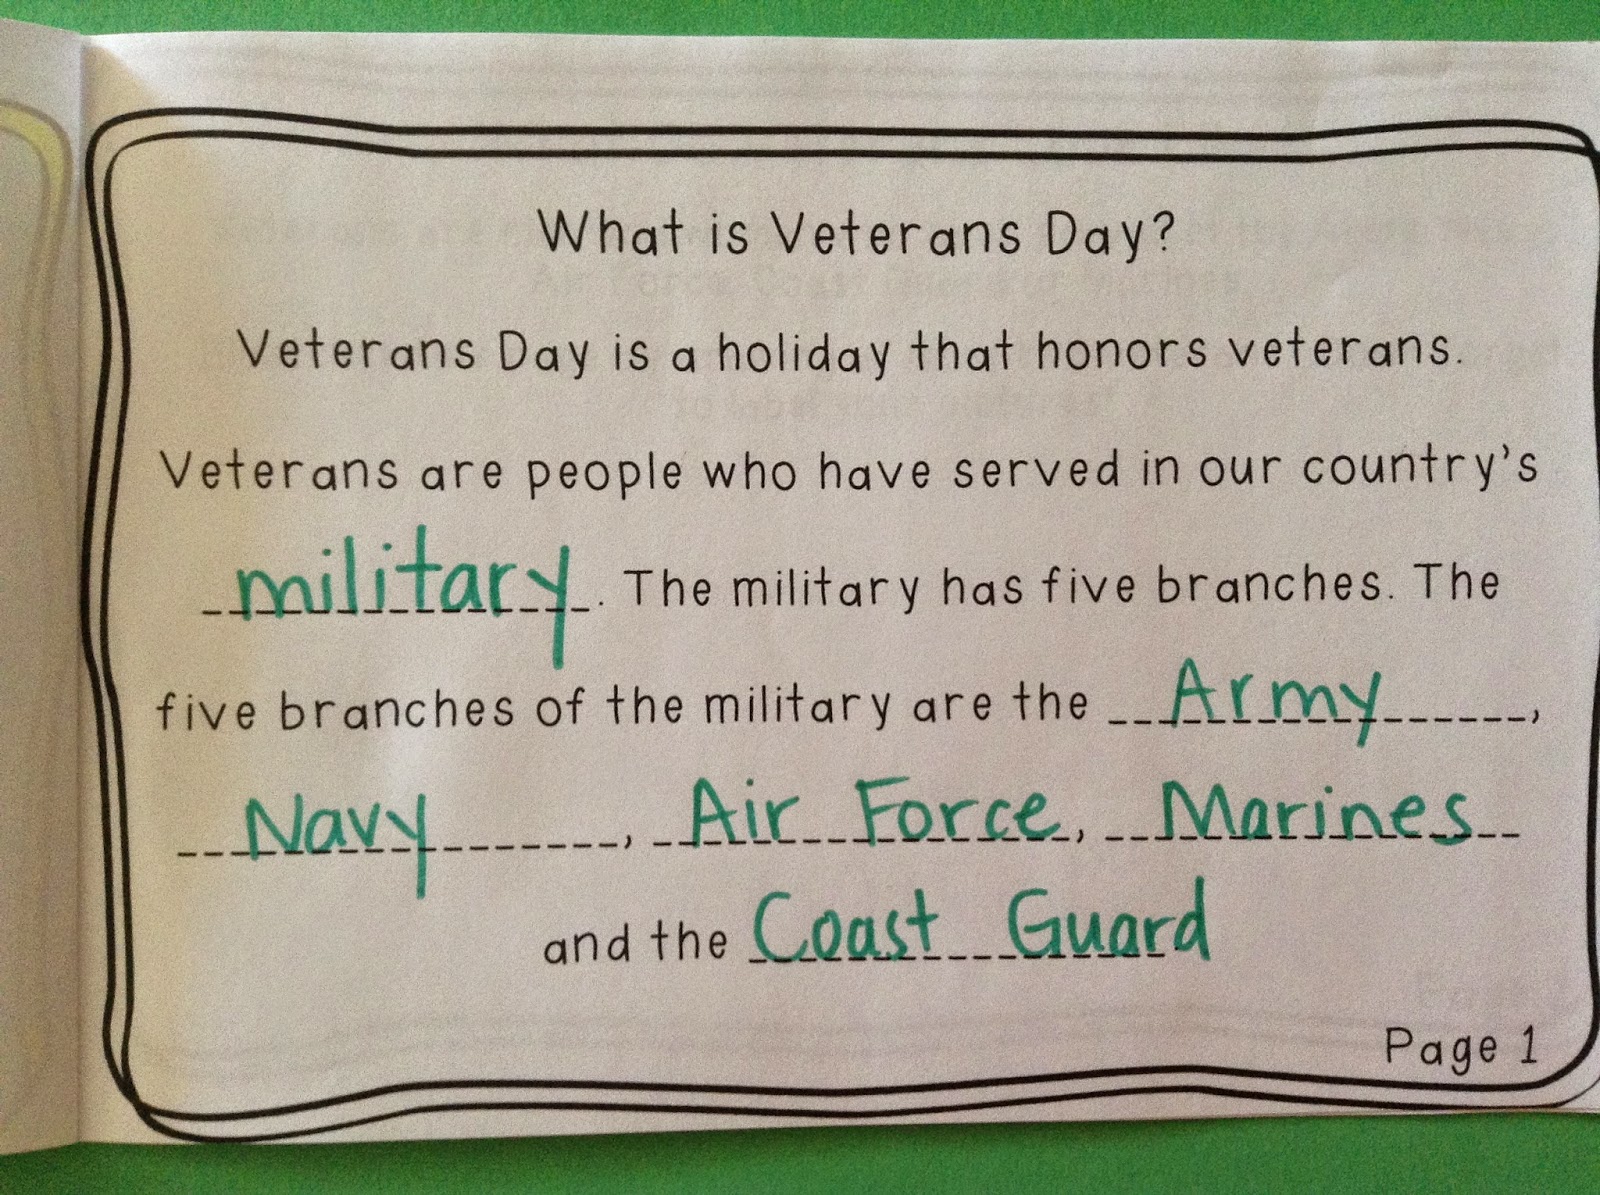 What is Veterans Day?
Veterans Day is a holiday that honors veterans.
Veterans are people who have served in our country's
military. The military has five branches. The
five branches of the military are the Army,
Navy, Air Force, Marines
and the Coast Guard
Page 1